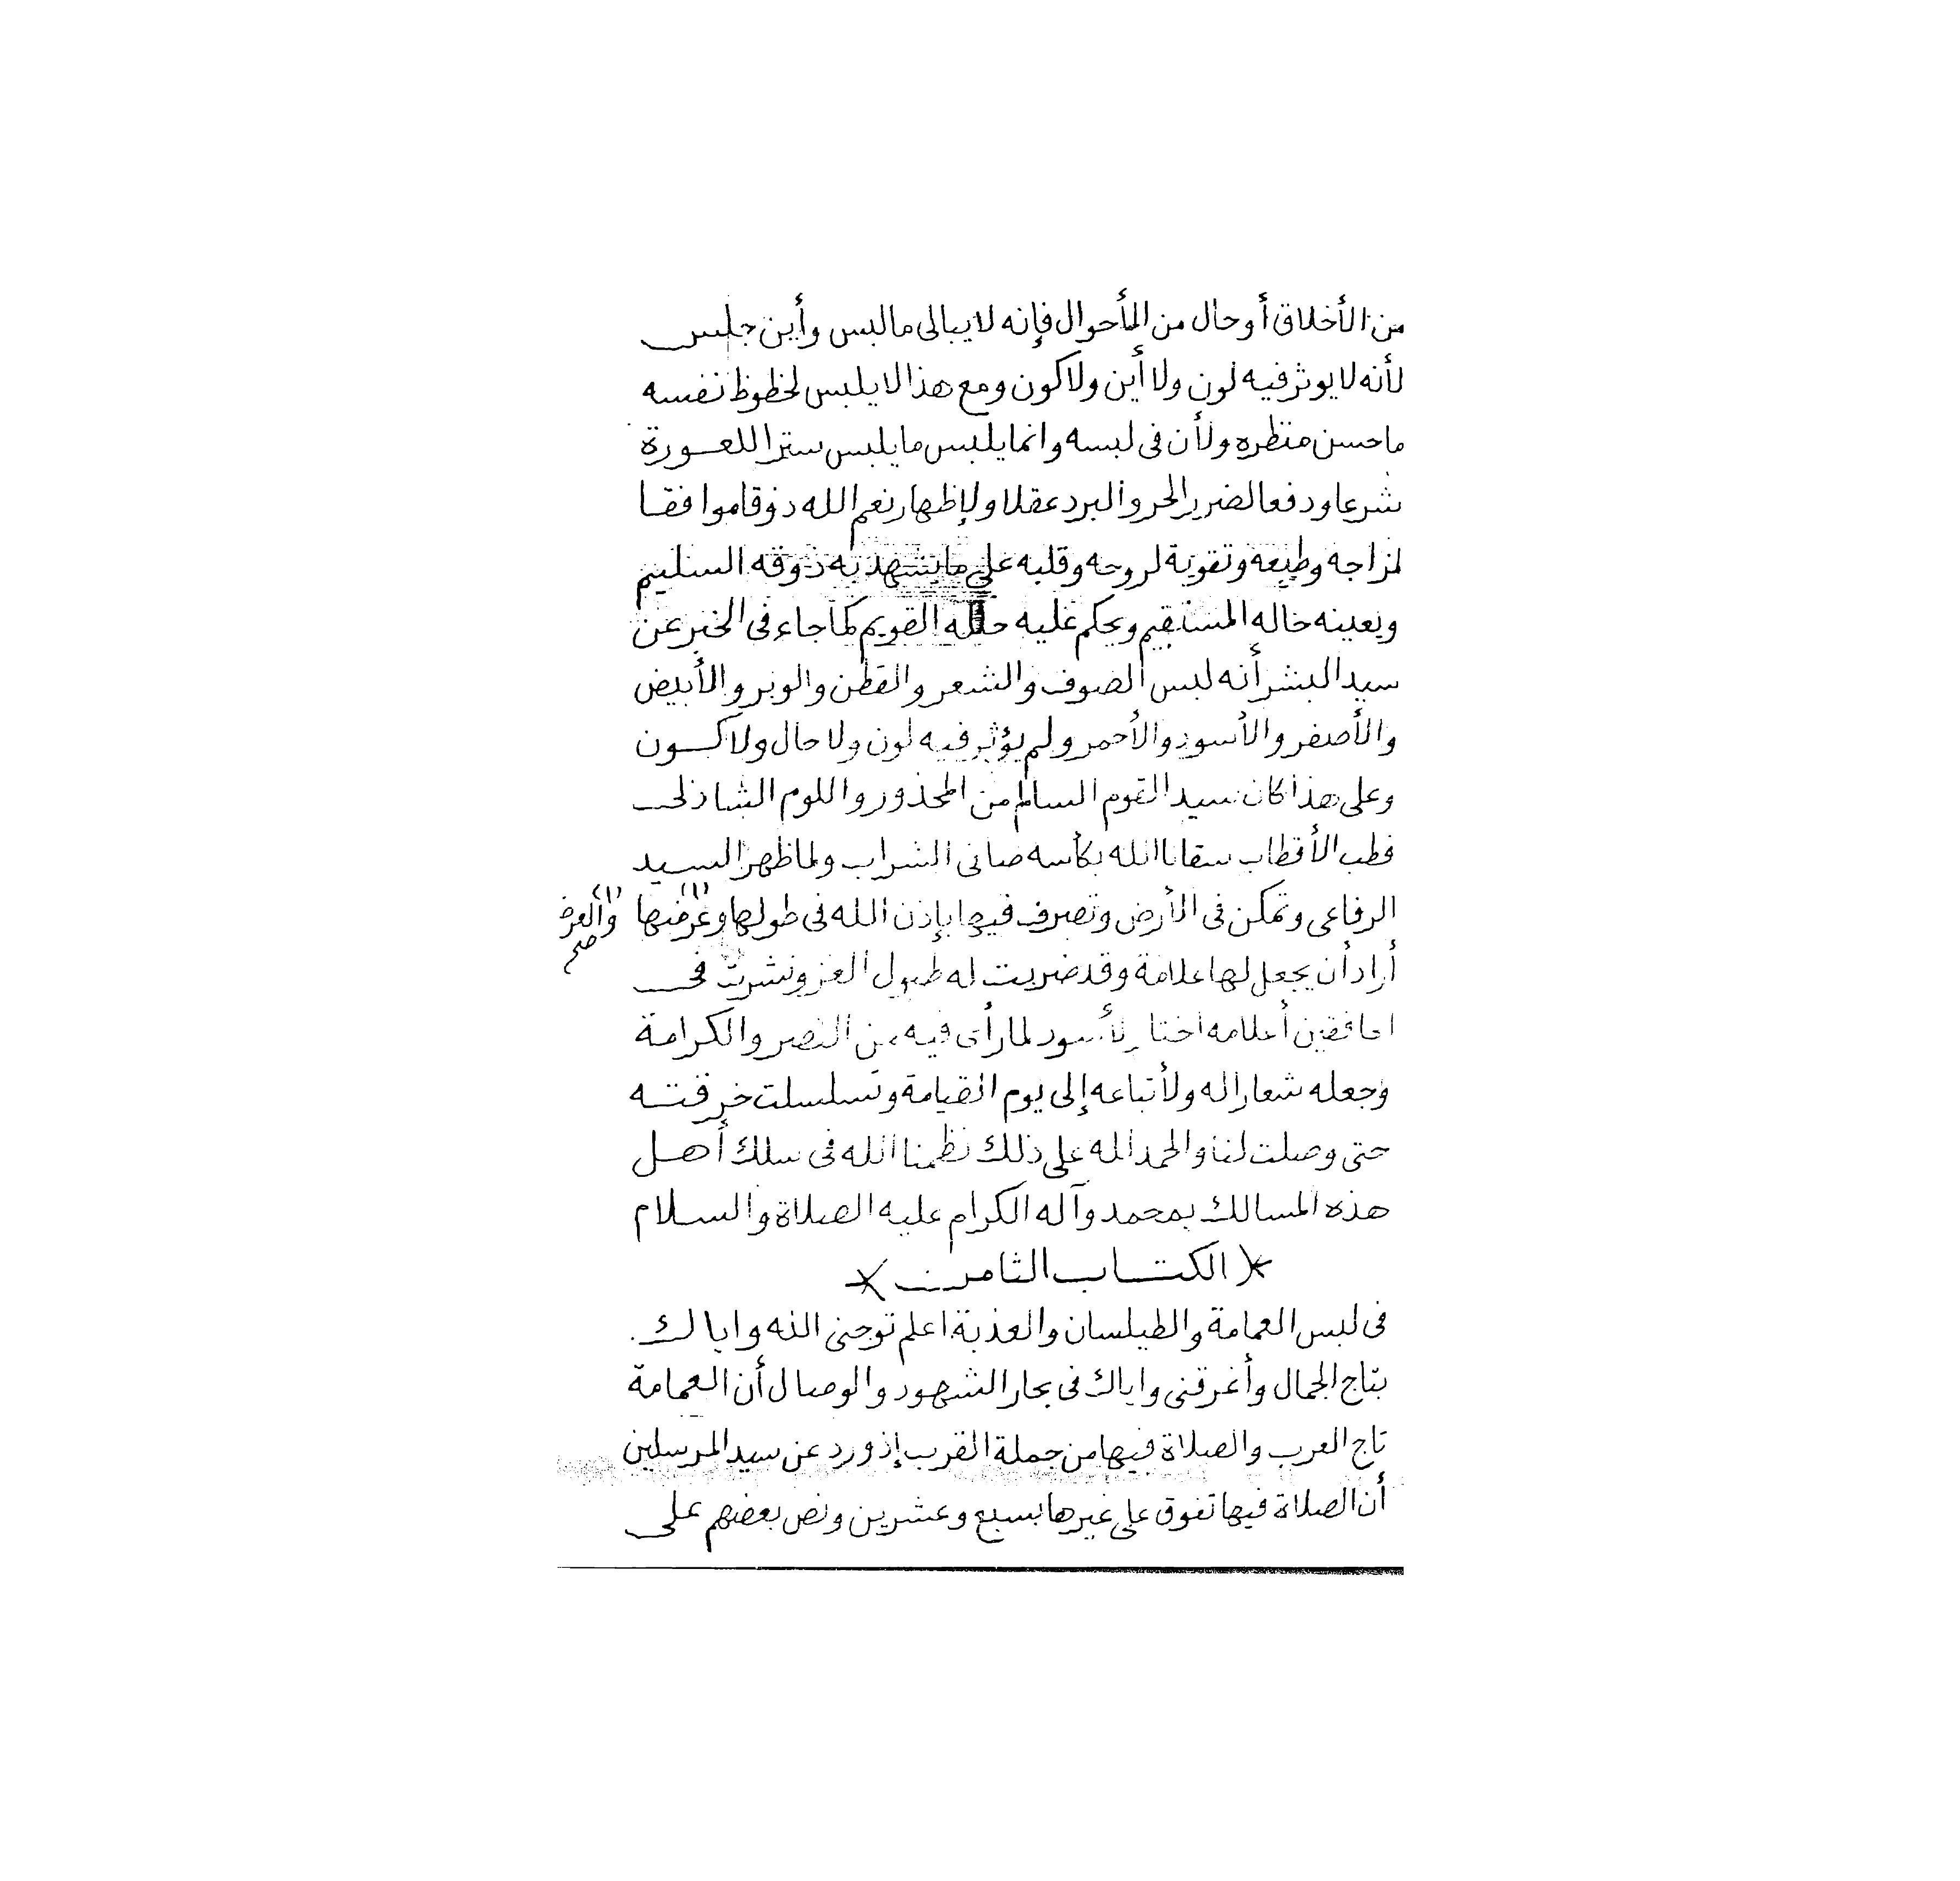 من الأخلاق أو حال من الأحوال فإنه لا يبالى ما لبس وأين جلس
لأنه لا يوثر فيه لون ولا أين ولا كون ومع هذا لا يلبس لحظوظ نفسه
ما حسن منظره ولأن فى لبسه وانما يلبس ما يلبس سترا للعورة
شرعا ودفعا لضرر الحر والبرد عقلا ولإظهار نعم الله ذوقا موافقا
لمزاجه وطبعه وتقوية لروحه وقلبه على ما يشهد به ذوقه السليم
ويعينه حاله المستقيم ويحكم عليه حاله القويم كما جاء فى الخبر عن
سيد البشر أنه لبس الصوف والشعر والقطن والوبر والأبيض
والأصفر والأسود والأحمر ولم يؤثر فيه لون ولا حال ولا كون
وعلى هذا كان سيد القوم السالم من المحذور واللوم الشاذلى
قطب الأقطاب سقانا الله بكأسه صافى الشراب ولما ظهر السيد
الرفاعى وتمكن فى الأرض وتصرف فيها بإذن الله فى طولها وعرضها (١)
(١) والعرض صح
أراد أن يجعل لها علامة وقد ضربت له طبول العز ونشرت فى
الخافقين أعلامه اختار الأسود لما رأى فيه من النصر والكرامة
وجعله شعارا له ولأتباعه إلى يوم القيامة وتسلسلت خرقته
حتى وصلت لنا والحمد لله على ذلك نظمنا الله فى سلك أهل
هذه المسالك بمحمد وآله الكرام عليه الصلاة والسلام
* الكتاب الثامن *
فى لبس العمامة والطيلسان والعذبة اعلم توجنى الله واياك
بتاج الجمال وأغرقنى واياك فى بحار الشهود والوصال أن العمامة
تاج العرب والصلاة فيها من جملة القرب إذ ورد عن سيد المرسلين
أن الصلاة فيها تفوق على غيرها بسبع وعشرين ونص بعضهم على